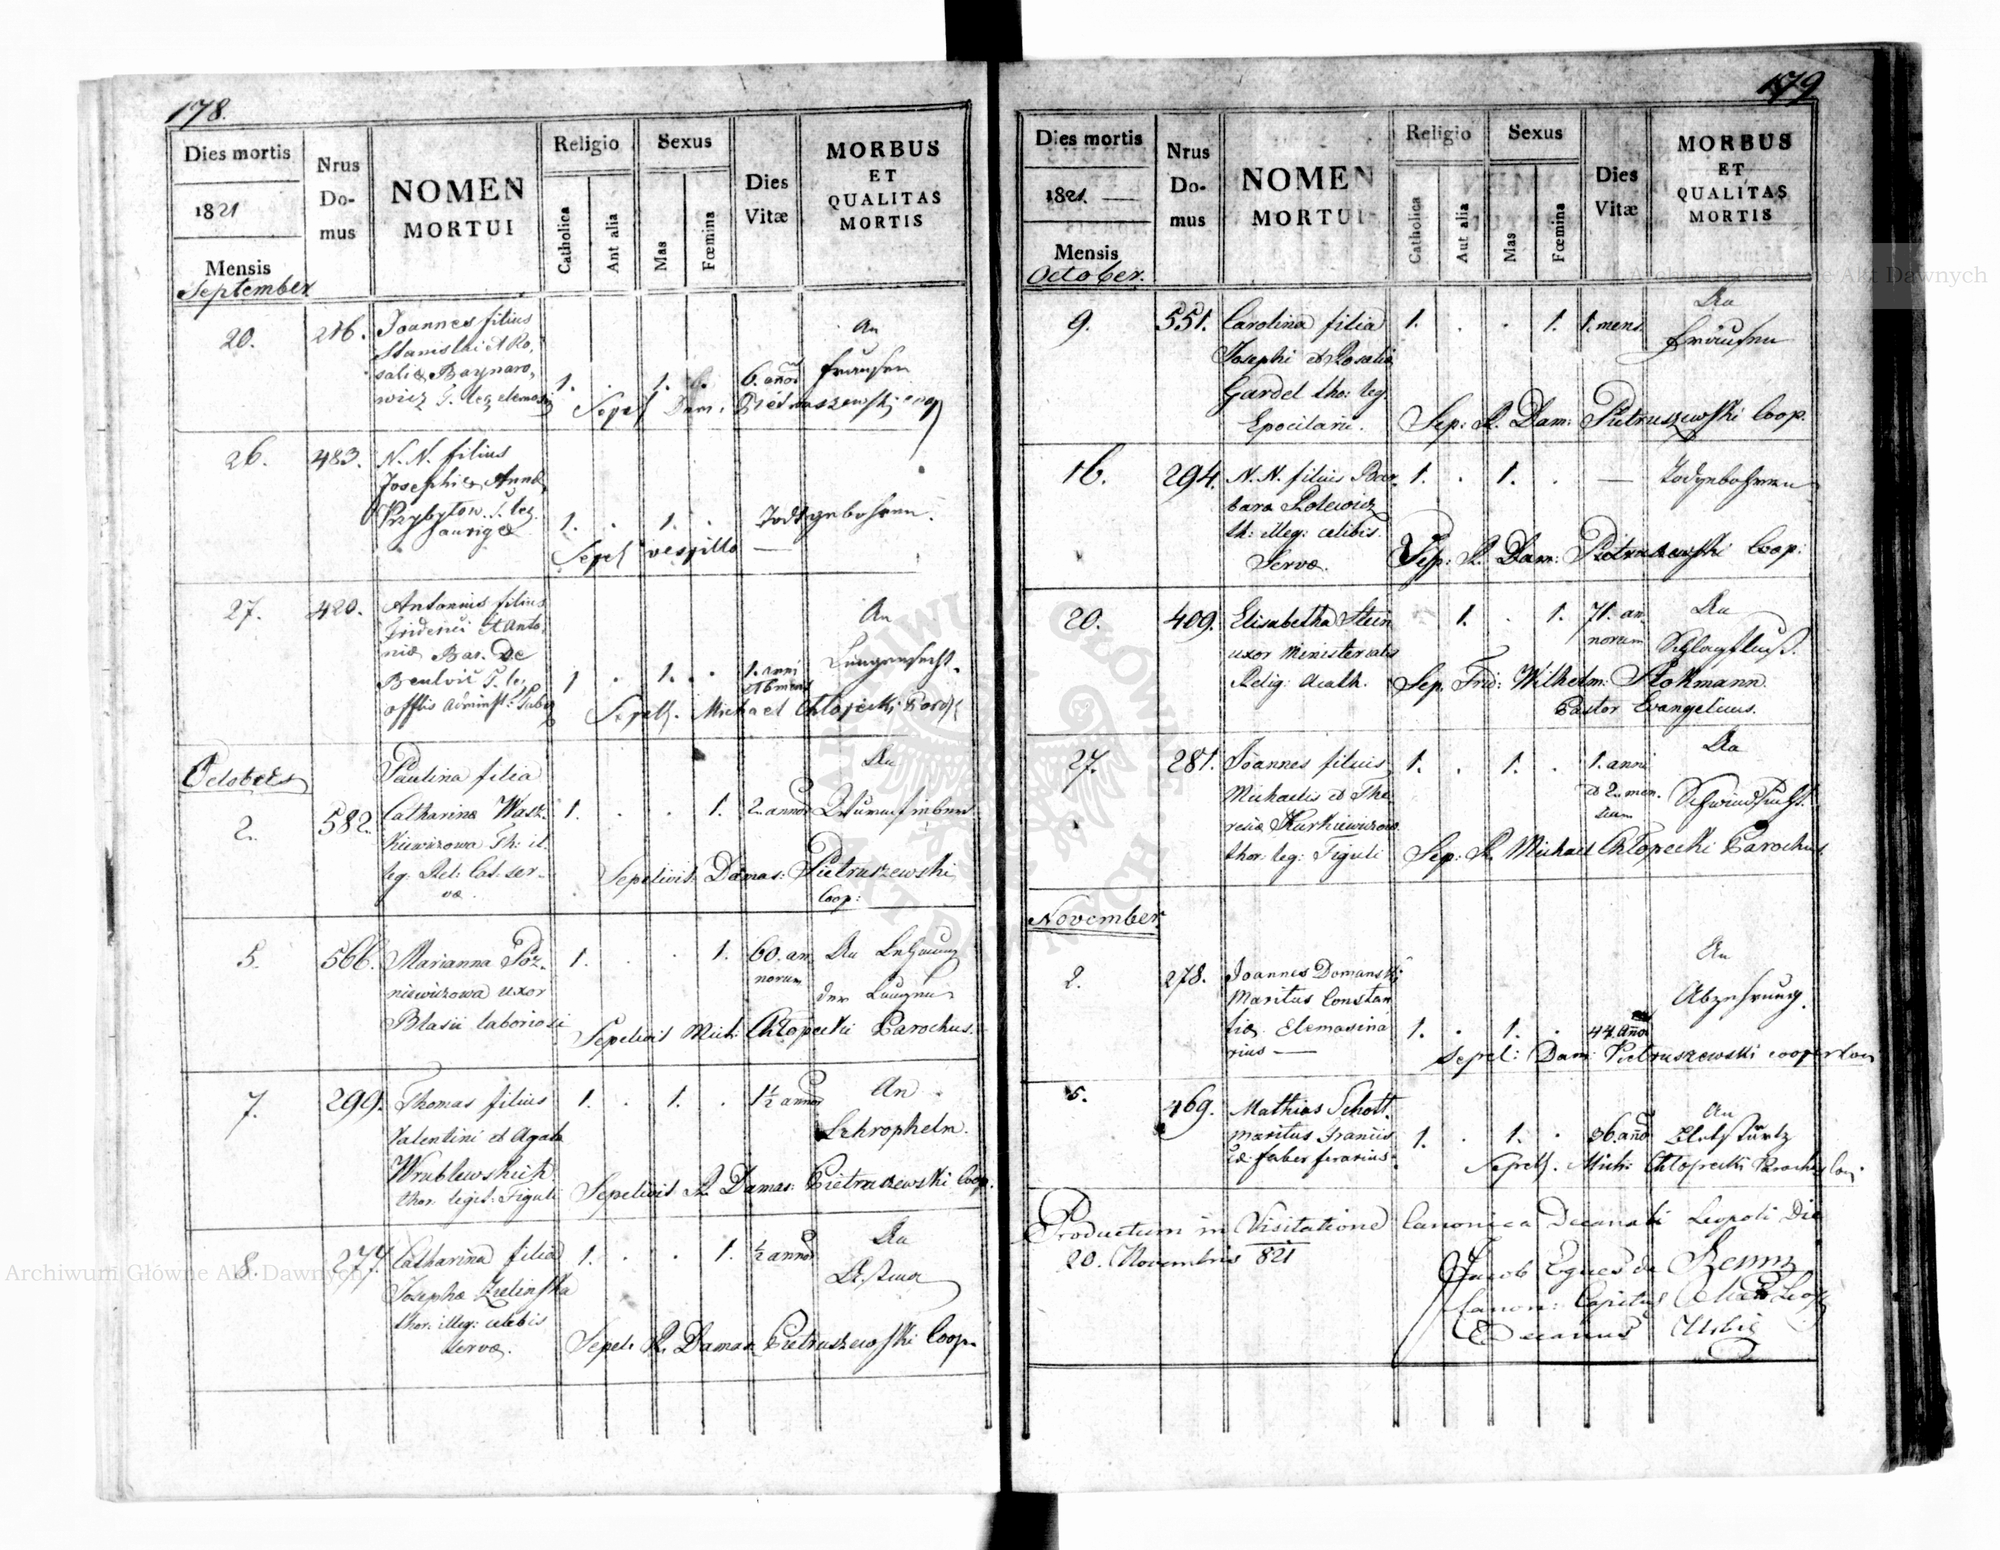 178.
Dies mortis
1821
Mensis
September
Nrus
Do-
mus
NOMEN
MORTUI
Religio
Catholica
Aut alia
Sexus
Mas
Fœmina
Dies
Vitæ
MORBUS
ET
QUALITAS
MORTIS
20. 216. Joannes filius
Stanislai et Ro,
saliæ Baynaro,
wicz T. leg. elemosin
1. . 1. 6. anor
An
Fraisen
Sepel Dam: Pietruszewski coop
26. 483. N. N. filius
Josephi & Annæ
Przybyton. T. leg.
aurigæ
1. . 1. . Todtgebohren.
Sepel vespillo —
27. 420. Antonius filius
Friderici et Anto,
niæ Bar. De
1 . 1. . 1. anni
et 6 mens
An
Lungensucht.
Sepeli. Michael Chłopecki Paroch
Octobris
2. 582. Paulina filia
Catharinæ Wasz-
kiewiczowa Th: il-
leg: Rel: Cat. ser-
væ.
1. . . 1. 2. annor
An
Wurmfieber
Sepelivit Damas: Pietruszewski
Coop:
5. 566. Marianna Poz-
niewiczowa uxor
Blasii laboriosi
1. . . 1. 60. an
norum
An Lähmung
der Lungen
Sepelivit Mich: Chłopecki Parochus.
7. 299. Thomas filius
Valentini et Agatæ
Wrublewskich
thor. legit: Figuli
1. . 1. . 1½ annor
An
Skropheln.
Sepelivit R. Damas: Pietruszewski Coop.
8. 277. Catharina filia
Josephæ Zielinska
thor: illeg: celibis
servæ.
1. . . 1. ½ annor
An
Sepel: R. Damas: Pietruszewski Coop:
179
Dies mortis
1821. —
Mensis
October.
Nrus
Do-
mus
NOMEN
MORTUI
Religio
Catholica
Aut alia
Sexus
Mas
Fœmina
Dies
Vitæ
MORBUS
ET
QUALITAS
MORTIS
9. 551. Carolina filia
Josephi et Rosaliæ
Gardel tho: leg
Epocilarii.
1. . . 1. 1. mens.
An
Fraisen
Sep: R. Dam: Pietruszewski Coop.
16. 294. N. N. filius Bar-
bara Rolewicz
th: illeg: celibis.
Servæ.
1. . 1. . — Todgebohren
Sep: R. Dam: Pietruszewski Coop:
20. 409. Elisabetha Stein
uxor Ministerialis
Relig: Acath.
1. . 1. 71. an-
norum
An
Schlagfluß.
Sep. Frid: Wilhelm: Stokmann
Pastor Evangelicus.
27. 281. Joannes filius
Michaelis et The
resiæ Kurkiewiczow
thor: leg: Figuli
1. . 1. . 1. anni
et 2. men-
sium
An
Schwindsucht.
Sep: R. Michael Chłopecki Parochus
November.
2. 278. Joannes Domanski
Maritus Constan
tiæ Elemosina
rius —
1. . 1. . 44 Año
An
Abzehrung.
Sepel: Dam: Pietruszewski cooperator
5. 469. Mathias Schott
maritus Francis
cæ faber ferarius.
1. . 1. . 36. año
An
Blutsturtz
Sepeli. Mich: Chłopecki Parochus
Productum in Visitatione Canonica Decanali Leopoli Die
20. Novembris 821
Jacob Eques de
Canon: Capituli
Decanus Urbis
Archiwum Główne Akt Dawnych
Archiwum Główne Akt Dawnych
ARCHIWUM GŁÓWNE AKT DAWNYCH